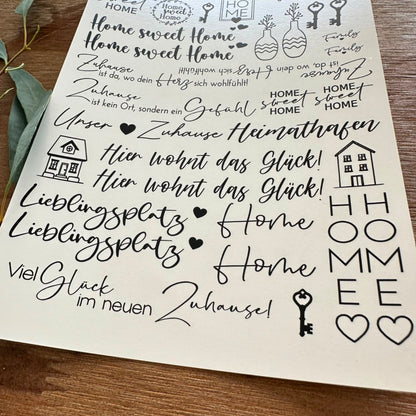 HOME
HOME
Home
sweet
Home
HO
ME
Home sweet Home
Home sweet Home
Family
Family
Zuhause
ist da, wo dein Herz sich wohlfühlt!
Zuhause
ist da, wo dein Herz sich wohlfühlt!
Zuhause
ist kein Ort, sondern ein Gefühl
HOME
sweet
HOME
HOME
sweet
HOME
Unser Zuhause Heimathafen
Hier wohnt das Glück!
Hier wohnt das Glück!
Lieblingsplatz Home
Lieblingsplatz Home
Viel Glück
im neuen Zuhause!
H
O
M
E
H
O
M
E